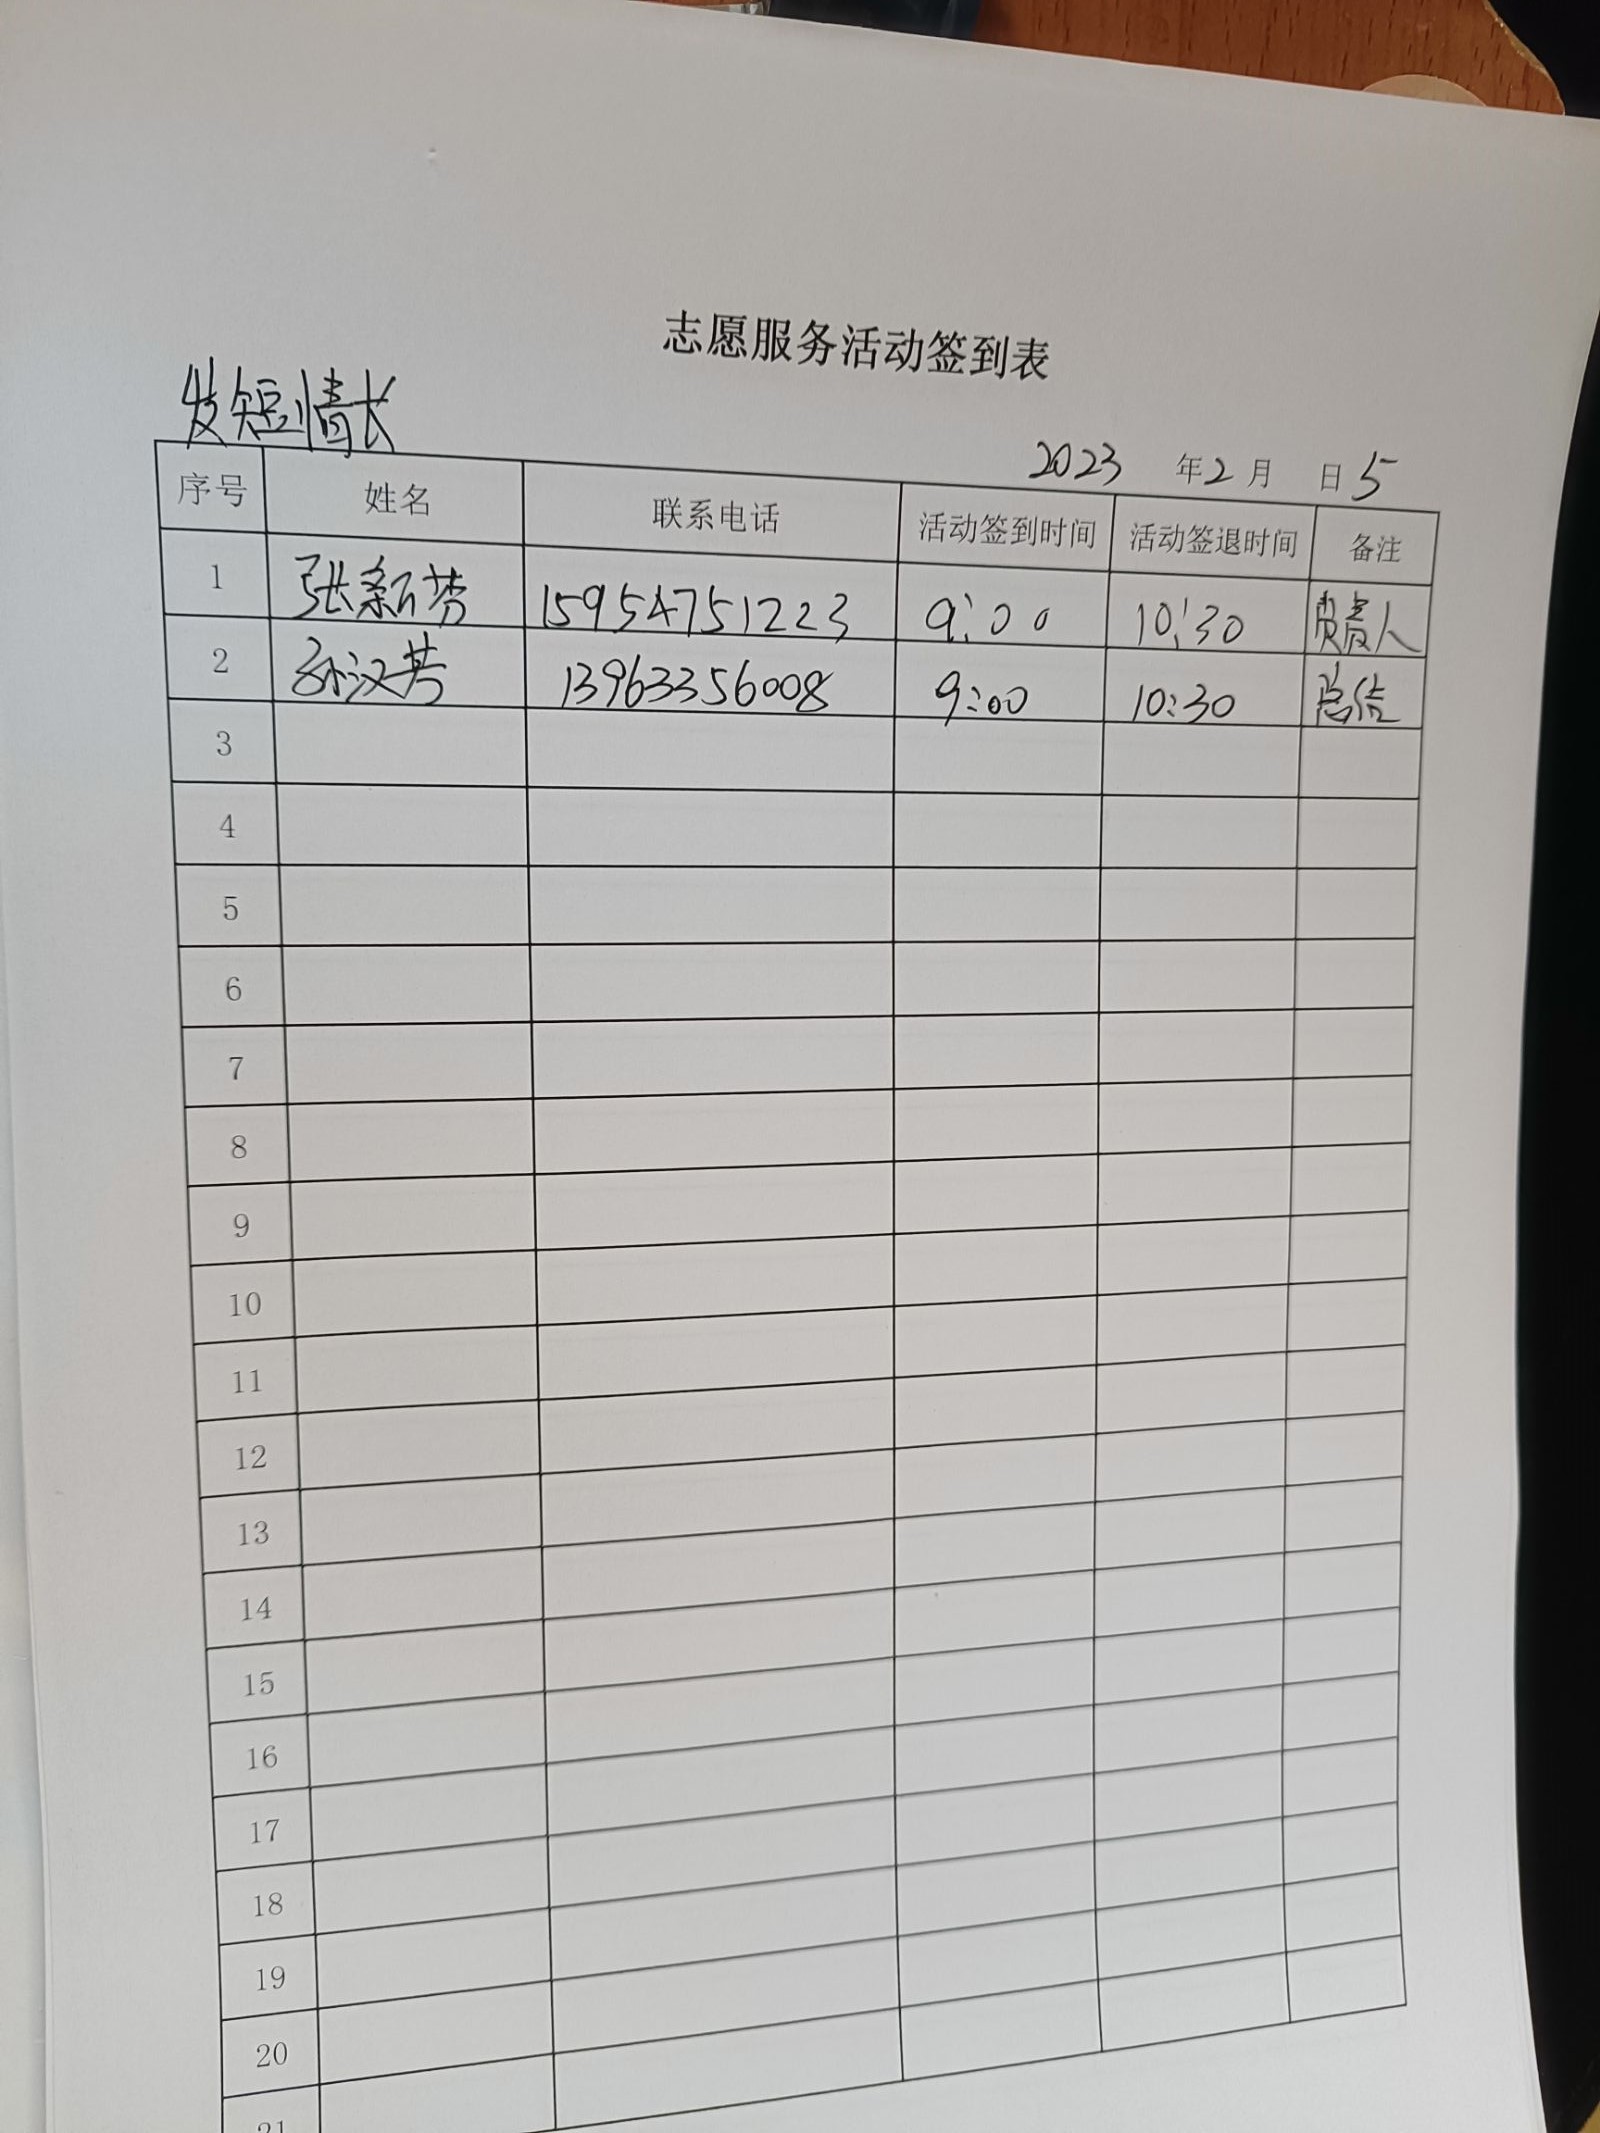 志愿服务活动签到表
发短情长
2023 年2月 日5
序号 姓名 联系电话 活动签到时间 活动签退时间 备注
1 张新芳 15954751223 9:00 10:30 负责人
2 孙汉芳 13963356008 9:00 10:30
3
4
5
6
7
8
9
10
11
12
13
14
15
16
17
18
19
20
21